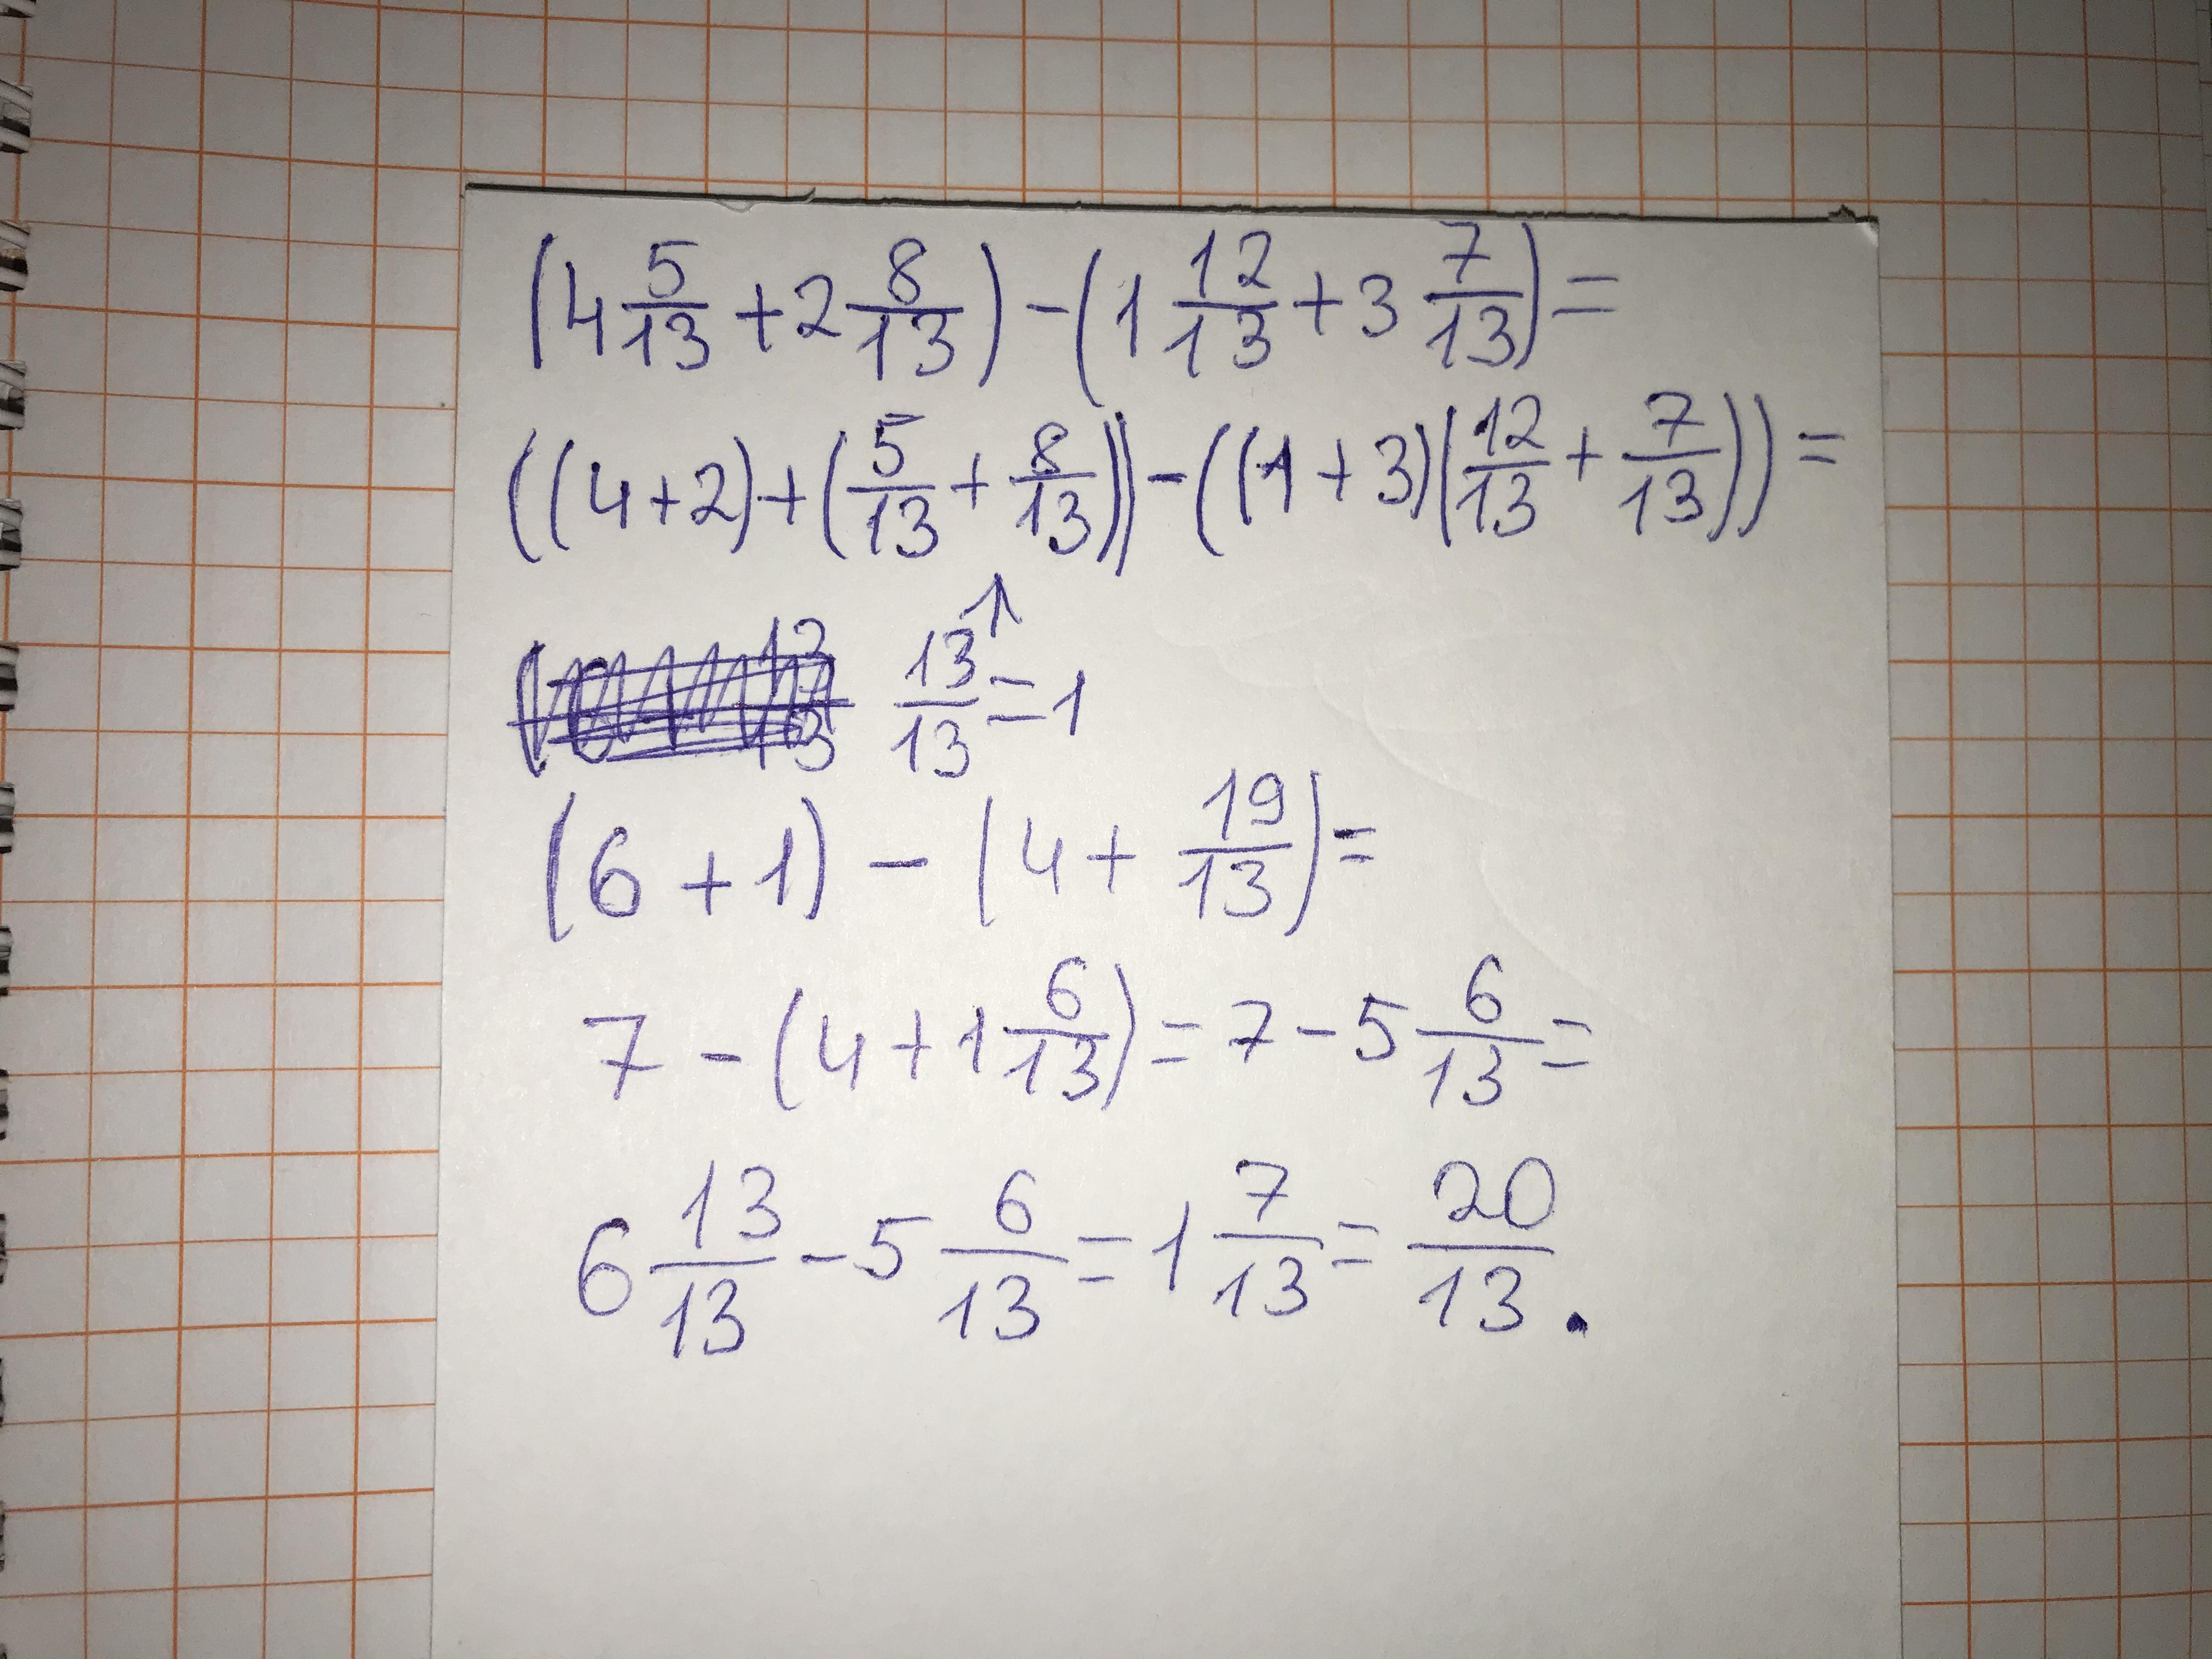 (4 5/13 + 2 8/13) - (1 12/13 + 3 7/13) =
((4 + 2) + (5/13 + 8/13)) - ((1 + 3)(12/13 + 7/13)) =
13/13 = 1
(6 + 1) - (4 + 19/13) =
7 - (4 + 1 6/13) = 7 - 5 6/13 =
6 13/13 - 5 6/13 = 1 7/13 = 20/13.